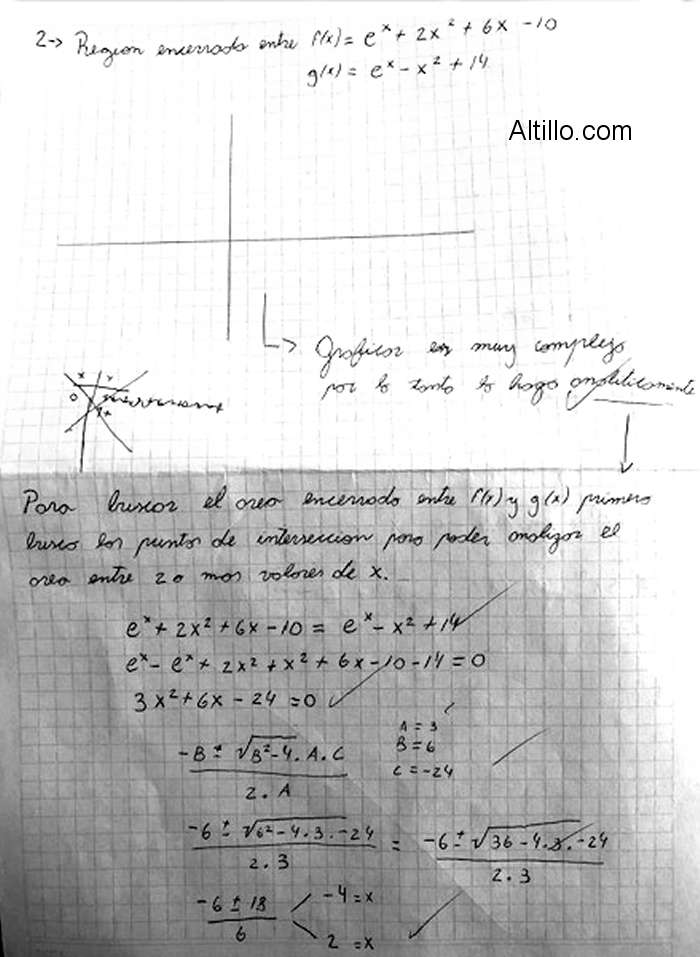 2-> Region encerrada entre f(x) = e^x + 2x² + 6x - 10
g(x) = e^x - x² + 14
Altillo.com
Graficar es muy complejo
por lo tanto lo hago analiticamente
x y
0
Para buscar el area encerrada entre f(x) y g(x) primero
busco los puntos de interseccion para poder analizar el
area entre 2 o mas valores de x.
e^x + 2x² + 6x - 10 = e^x - x² + 14
e^x - e^x + 2x² + x² + 6x - 10 - 14 = 0
3x² + 6x - 24 = 0
A = 3
B = 6
C = -24
-B ± √B² - 4 . A . C
2 . A
-6 ± √6² - 4 . 3 . -24 = -6 ± √36 - 4 . 3 . -24
2 . 3 2 . 3
-6 ± 18 -4 = x
6 2 = x